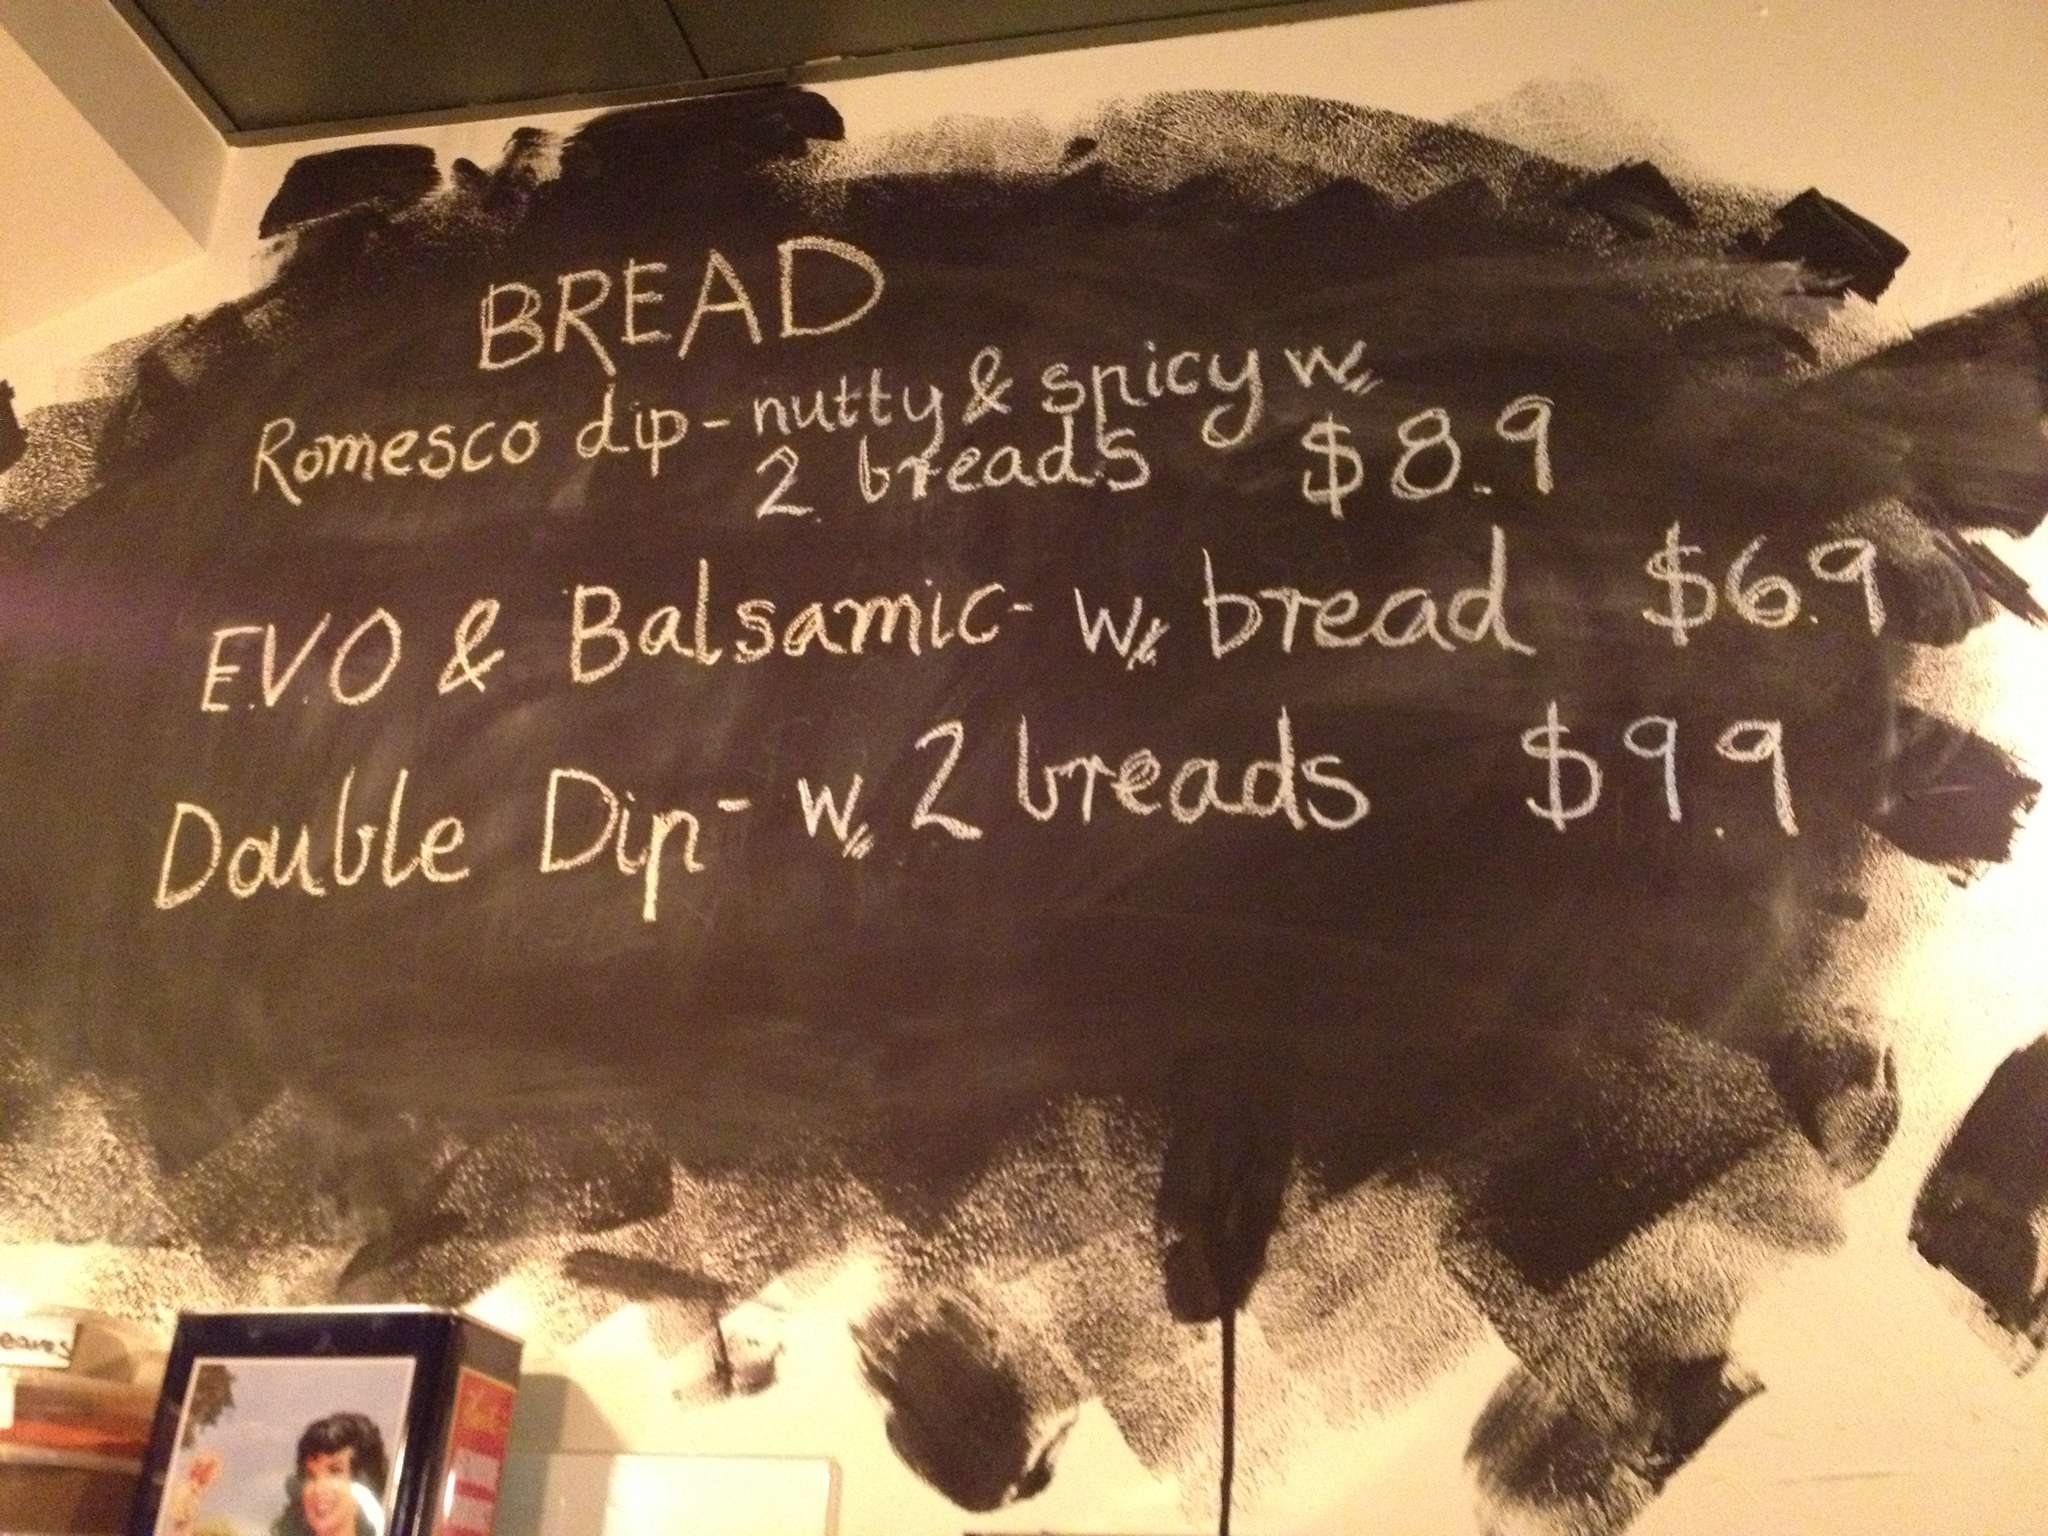 BREAD
Romesco dip - nutty & spicy w//
2 breads $8.9
E.V.O & Balsamic - w// bread $6.9
Double Dip - w// 2 breads $9.9